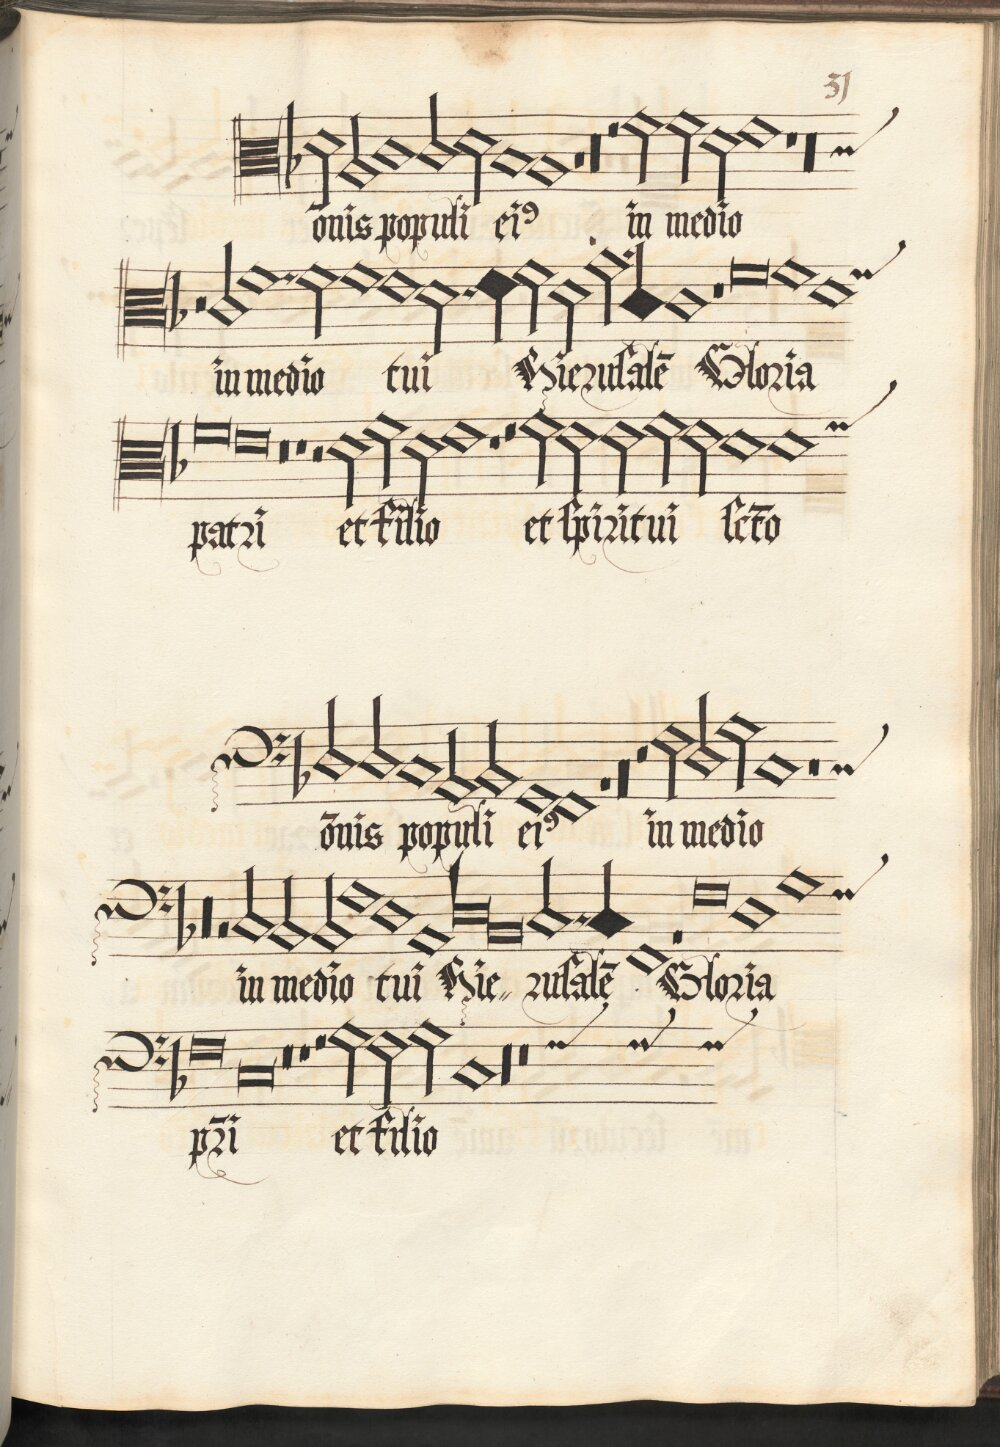 31
o̅nis populi eiꝰ in medio
in medio tui Hierusale̅ Gloria
patri et Filio et spiritui scto̅
o̅nis populi eiꝰ in medio
in medio tui Hie„ rusale̅ Gloria
pr̅i et Filio